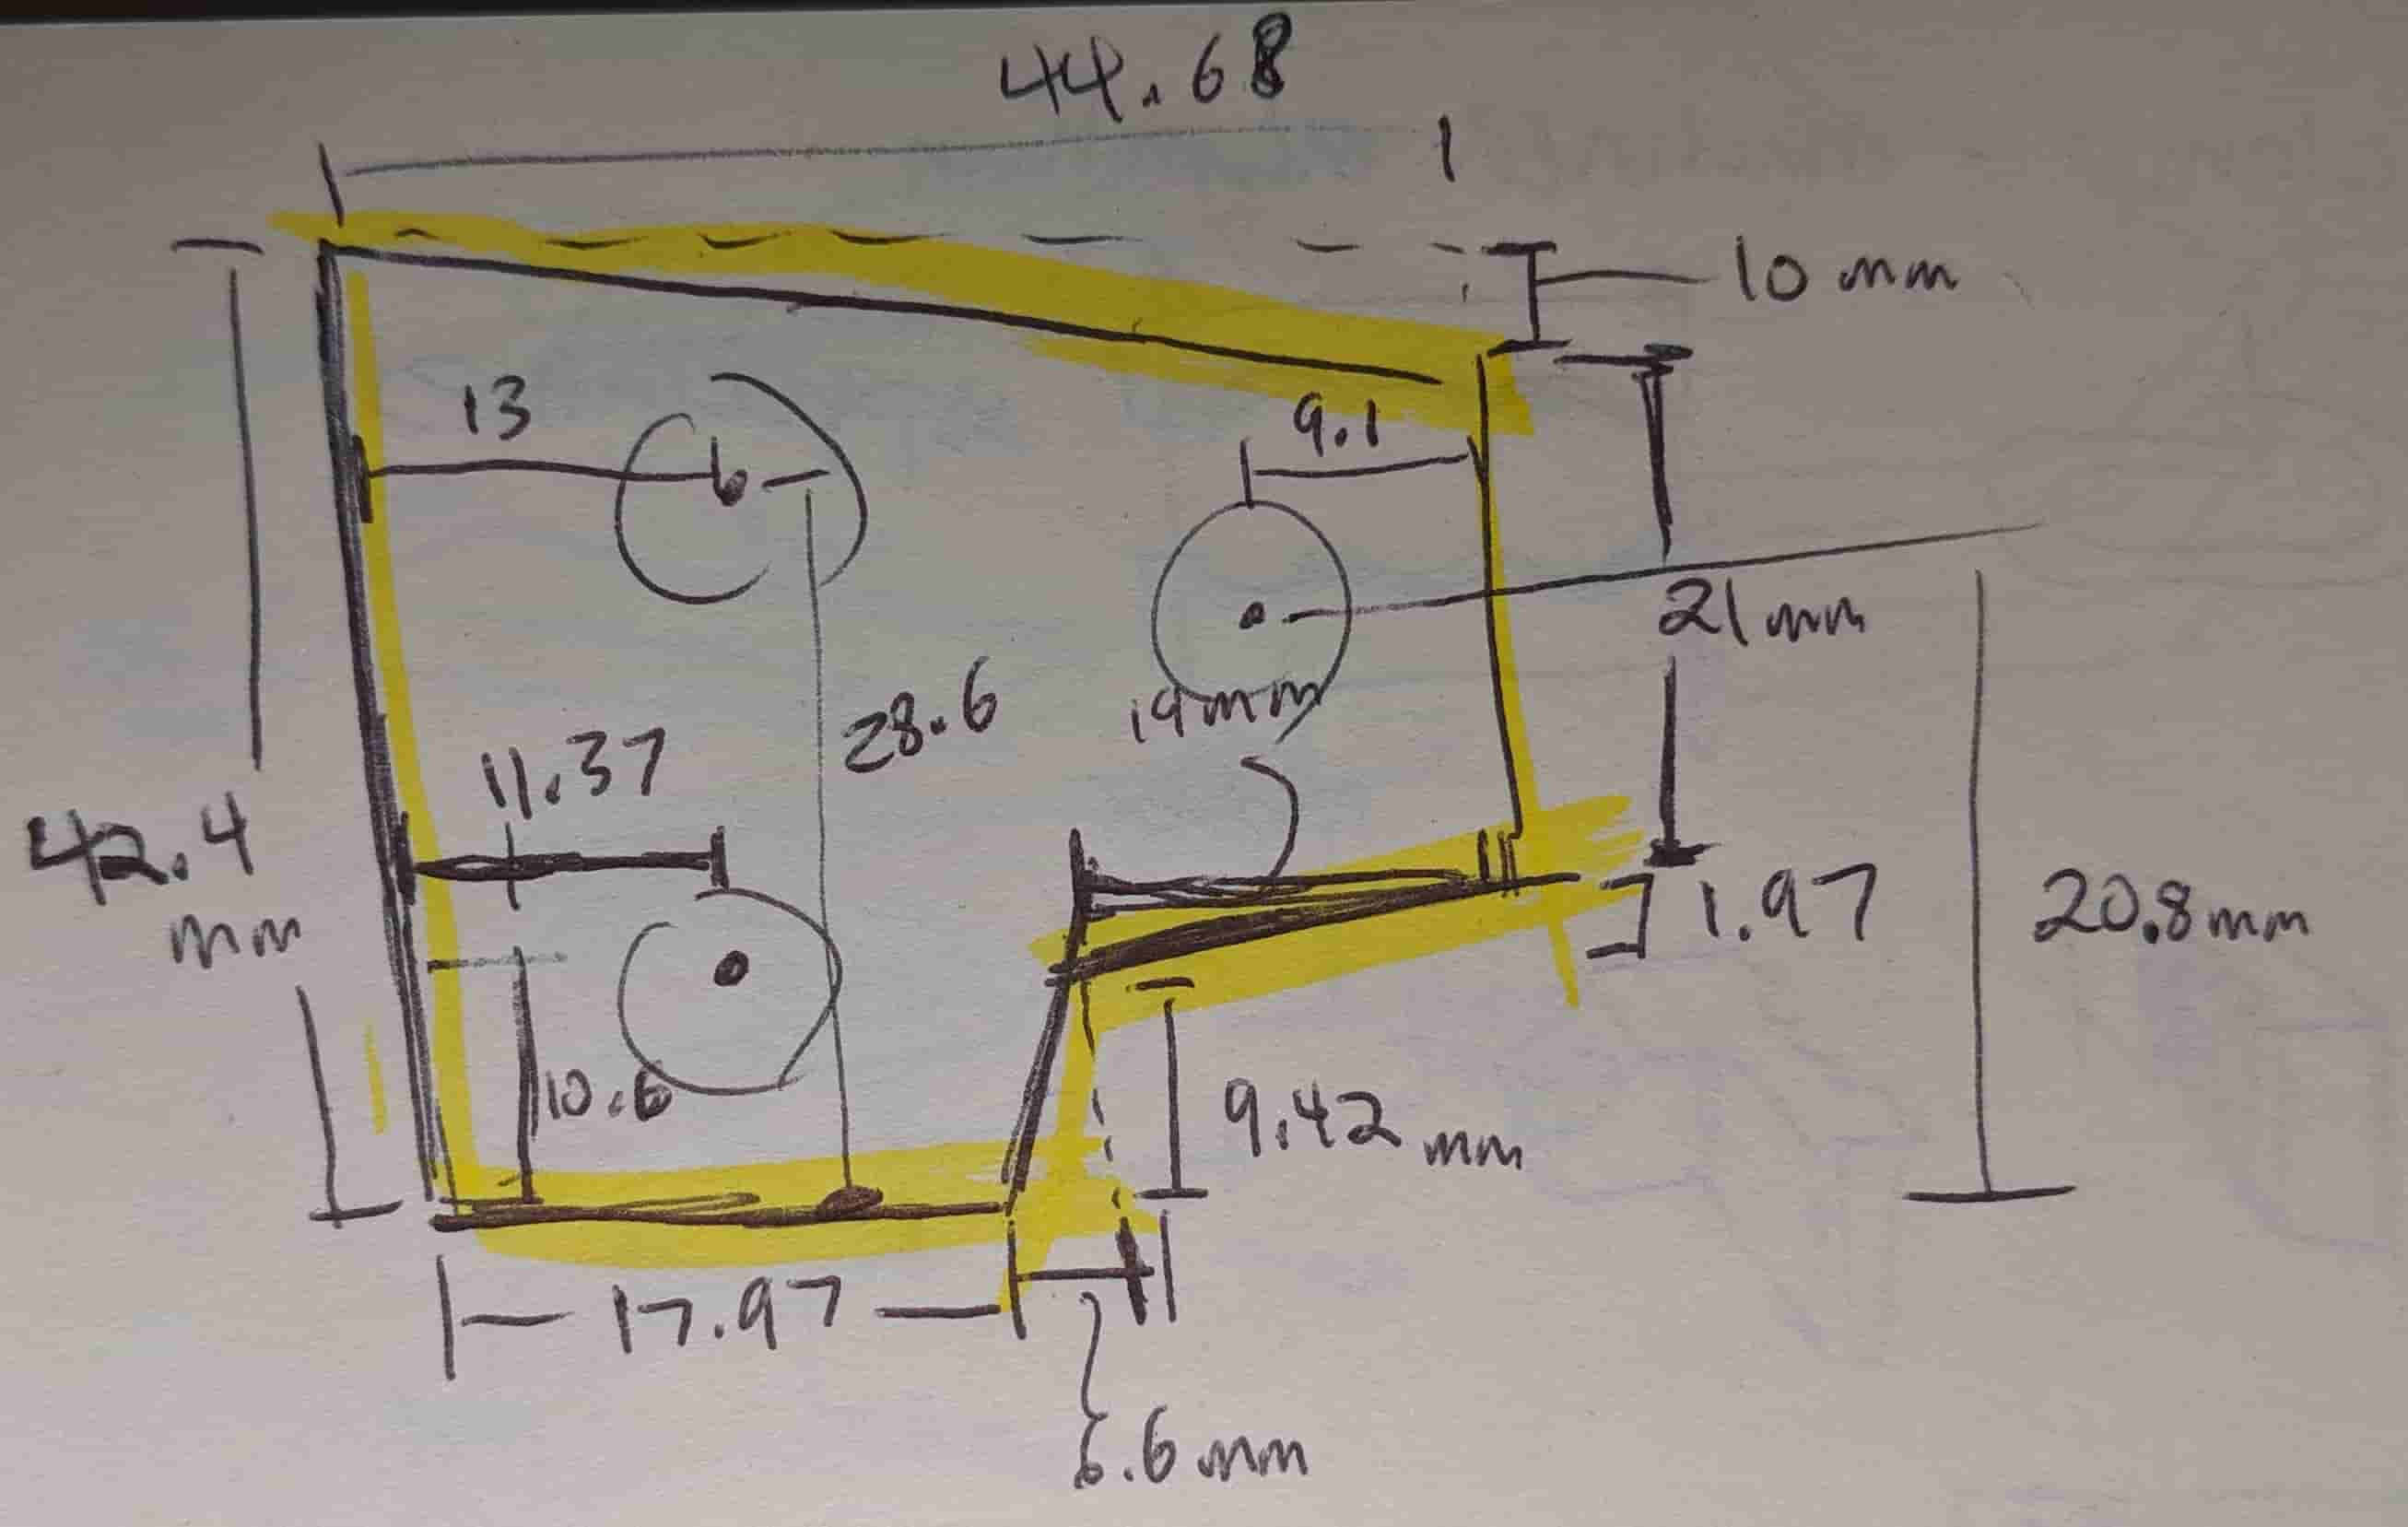 44.68
10 mm
13
9.1
21 mm
28.6
19mm
11.37
42.4
mm
1.97
20.8mm
10.6
9.42 mm
17.97
6.6 mm